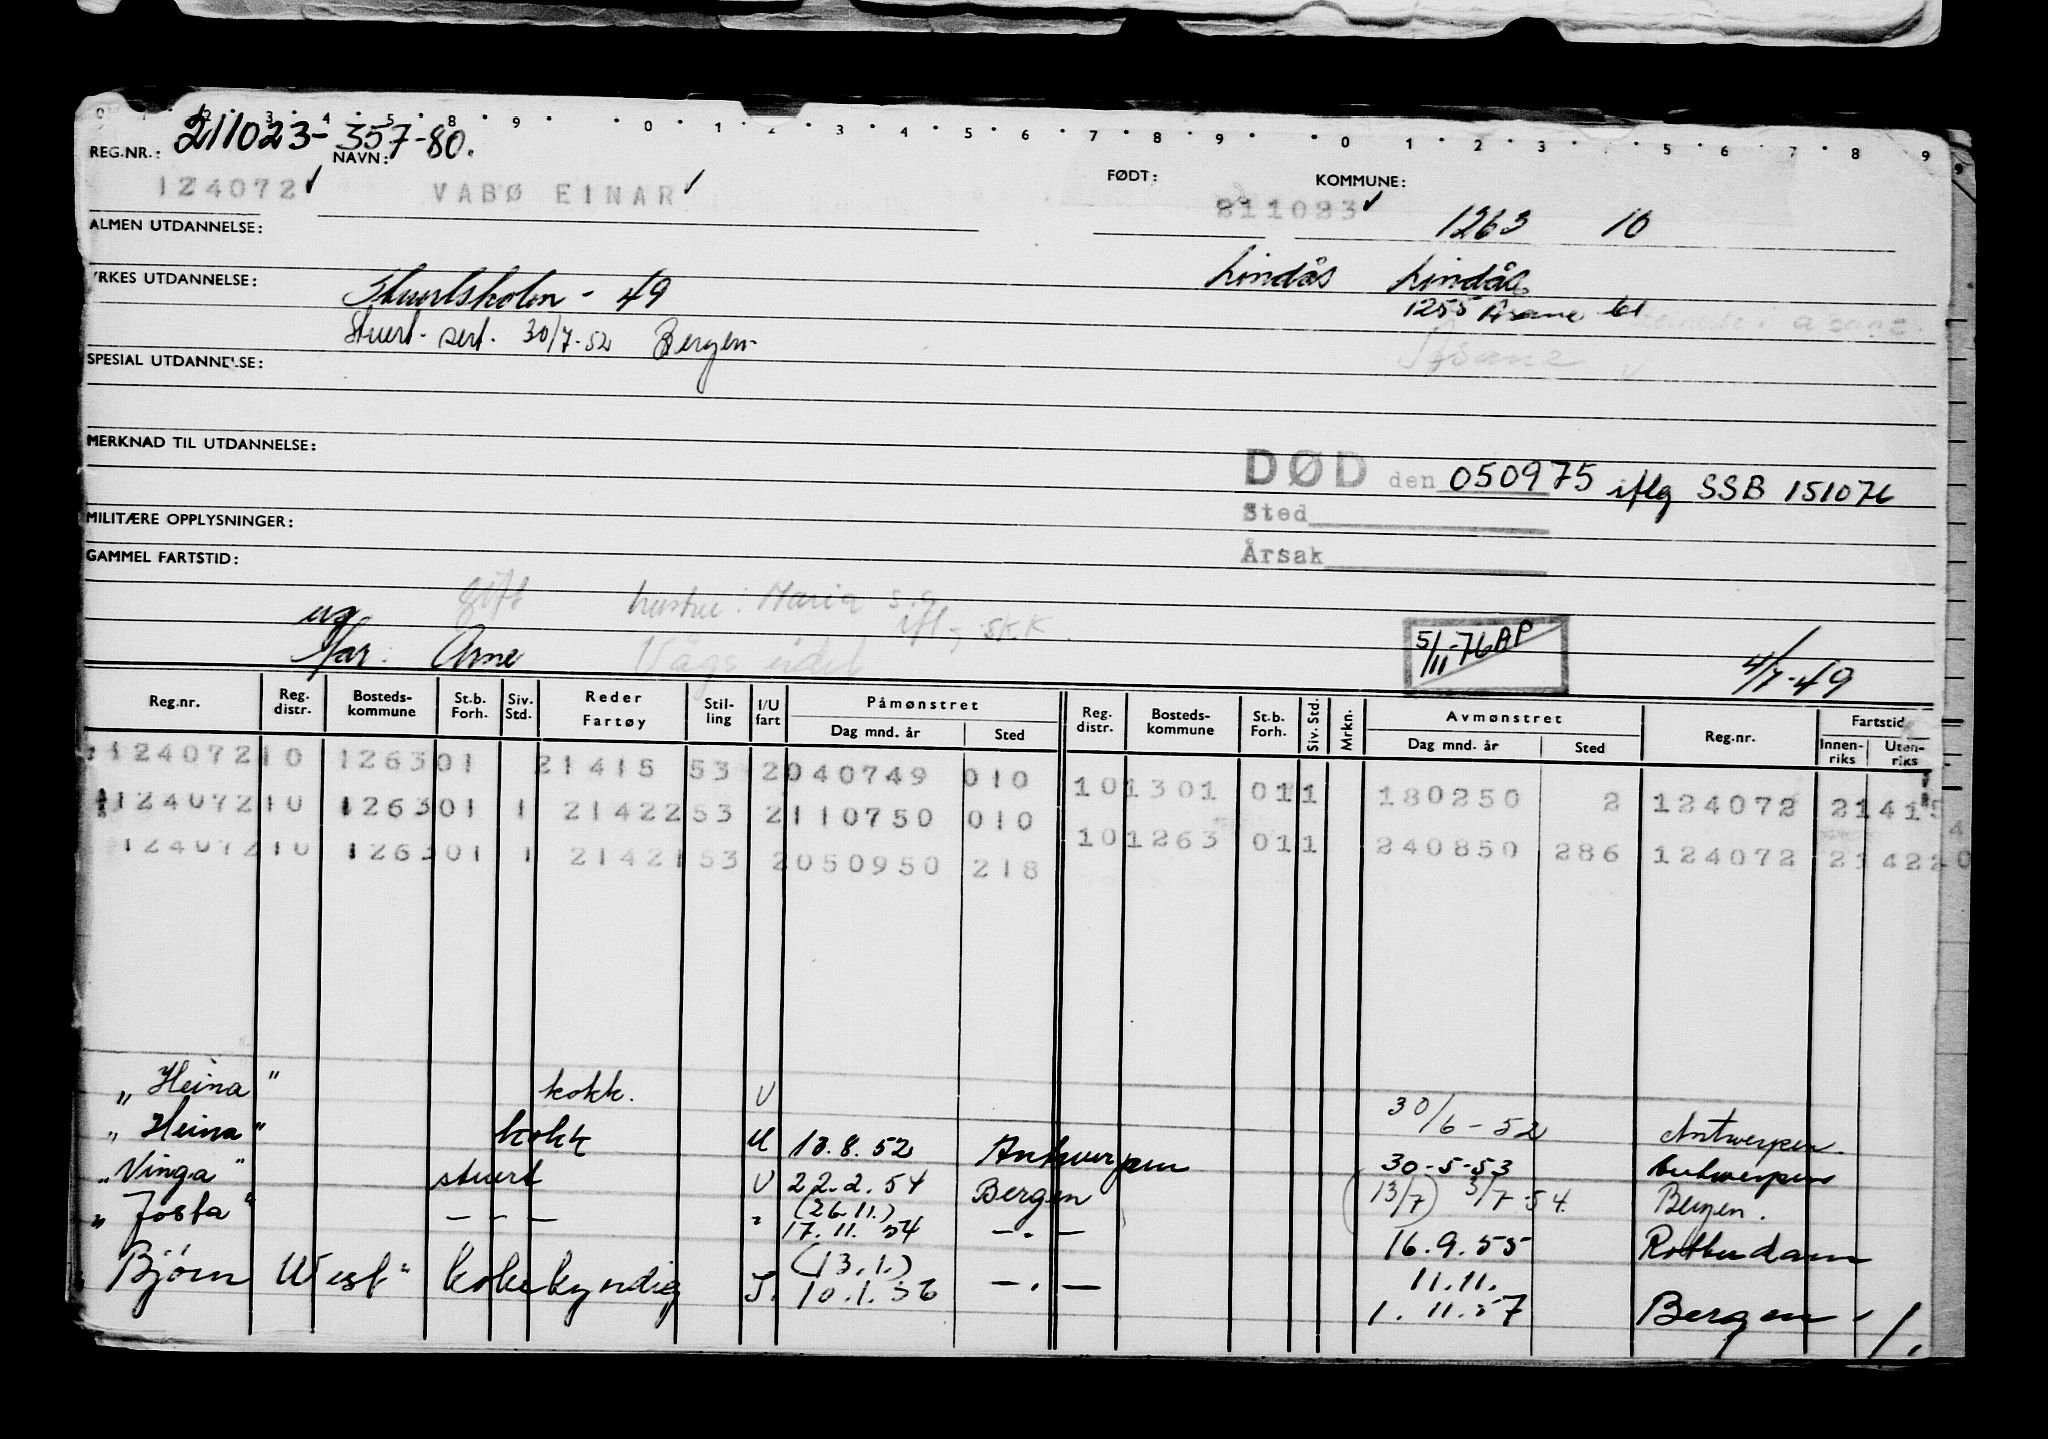 211023-357-80.
REG.NR.: NAVN: FØDT: KOMMUNE:
124072 VABØ EINAR 211023 1263 10
ALMEN UTDANNELSE:
Lindås Lindås
YRKES UTDANNELSE: Stuertskolen - 49
1255 Åsane
Stuert. sert. 30/7-52 Bergen
SPESIAL UTDANNELSE:
MERKNAD TIL UTDANNELSE:
DØD den 050975 iflg SSB 151076
Sted
MILITÆRE OPPLYSNINGER:
GAMMEL FARTSTID:
Årsak
gift hustru: Maria s.a.
ug ifl, SKK.
far: Arne
5/11-76 AP
4/7-49
Reg.nr. Reg. distr. Bosteds-kommune St.b. Forh. Siv. Std. Reder Fartøy Stil-ling I/U fart Påmønstret Dag mnd. år Sted Reg. distr. Bosteds-kommune St.b. Forh. Siv. Std. Mrkn. Avmønstret Dag mnd. år Sted Reg.nr. Fartstid Innen-riks Uten-riks
124072 10 1263 01 21415 53 2 040749 010 10 1301 01 1 180250 2 124072 21415
124072 10 1263 01 1 21422 53 2 110750 010 10 1263 01 1 240850 286 124072 21422
124072 10 1263 01 1 21421 53 2 050950 218
„Heina" kokk. U 30/6-52 Antwerpen.
„Heina" kokk U 10.8.52 Antwerpen 30-5-53 Antwerpen
„Vinga" stuert U 22.2.54 Bergen (13/7) 3/7-54. Bergen.
(26.11.)
„Josta" - - - „ 17.11.54 - . - 16.9.55 Rotterdam
(13.1.) 11.11.
Bjørn West" kokekyndig I. 10.1.56 - . - 1.11.57 Bergen 1.